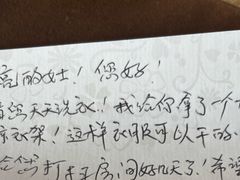 亮的女士！您好！
着您天天洗衣！我给你拿了一个
衣架！这样衣服可以干的
给您打扫房间好几天了！希望